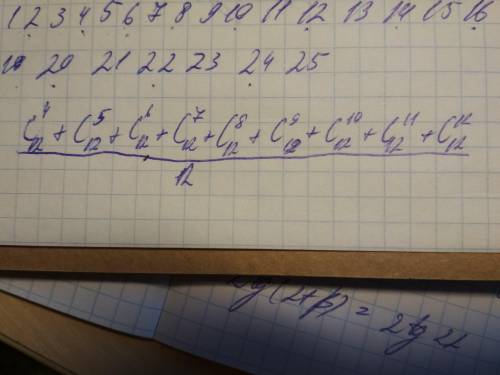 1 2 3 4 5 6 7 8 9 10 11 12 13 14 15 16
20 21 22 23 24 25
C₁₂⁴ + C₁₂⁵ + C₁₂⁶ + C₁₂⁷ + C₁₂⁸ + C₁₂⁹ + C₁₂¹⁰ + C₁₂¹¹ + C₁₂¹²
12
= 2tg